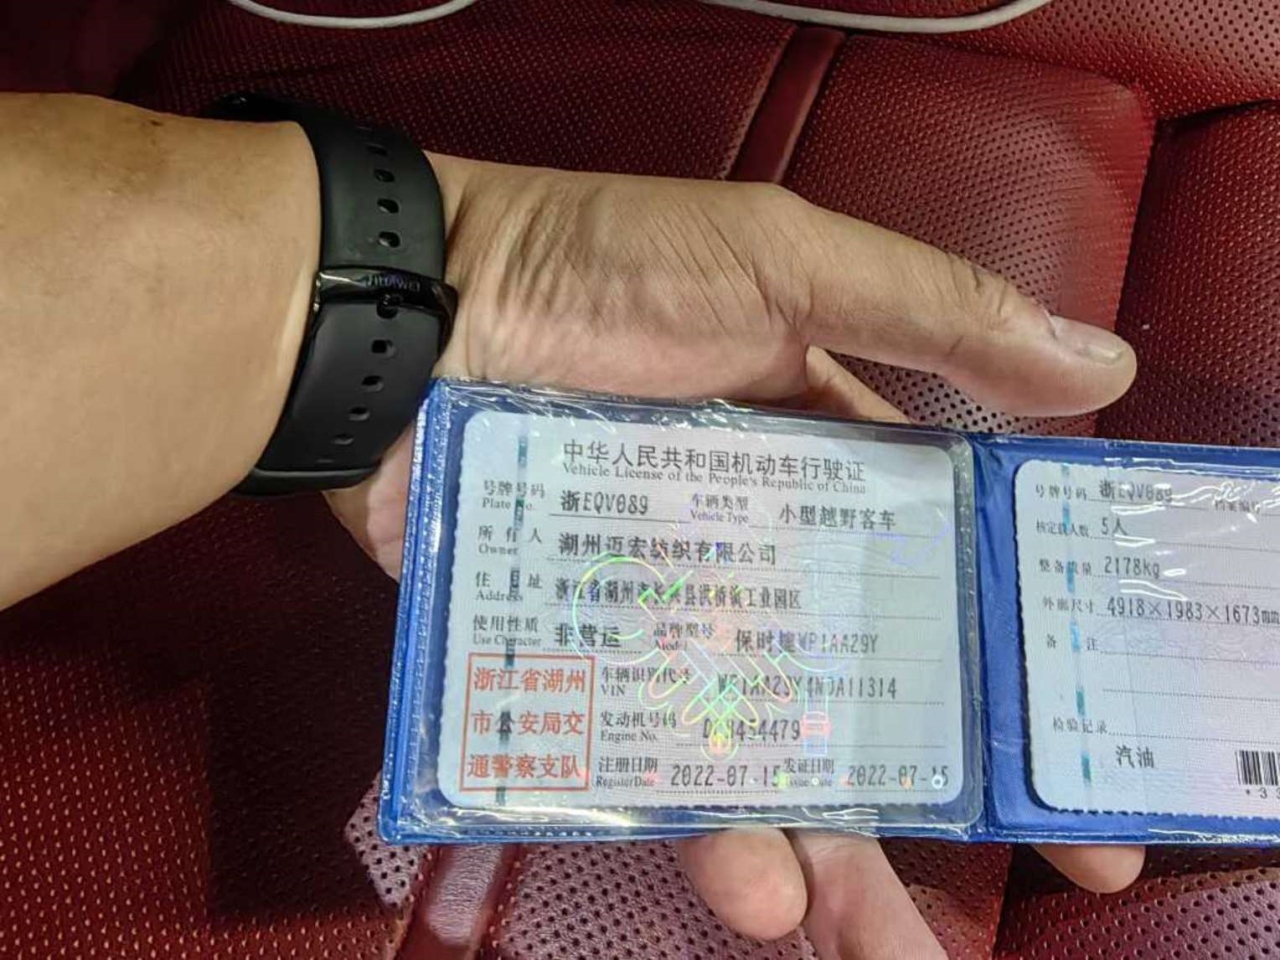 HUAWEI
中华人民共和国机动车行驶证
Vehicle License of the People's Republic of China
号牌号码 浙EQV089 车辆类型 小型越野客车
Plate No. Vehicle Type
所有人 湖州迈宏纺织有限公司
Owner
住址 浙江省湖州市长兴县洪桥镇工业园区
Address
使用性质 非营运 品牌型号 保时捷WP1AA29Y
Use Character Model
浙江省湖州
市公安局交
通警察支队
车辆识别代号 WP1AA29Y4NDA11314
VIN
发动机号码
Engine No.
注册日期 2022-07-15 发证日期 2022-07-15
Register Date Issue Date
号牌号码 浙EQV089
核定载人数 5人
整备质量 2178kg
外廓尺寸 4918×1983×1673mm
备注
检验记录
汽油